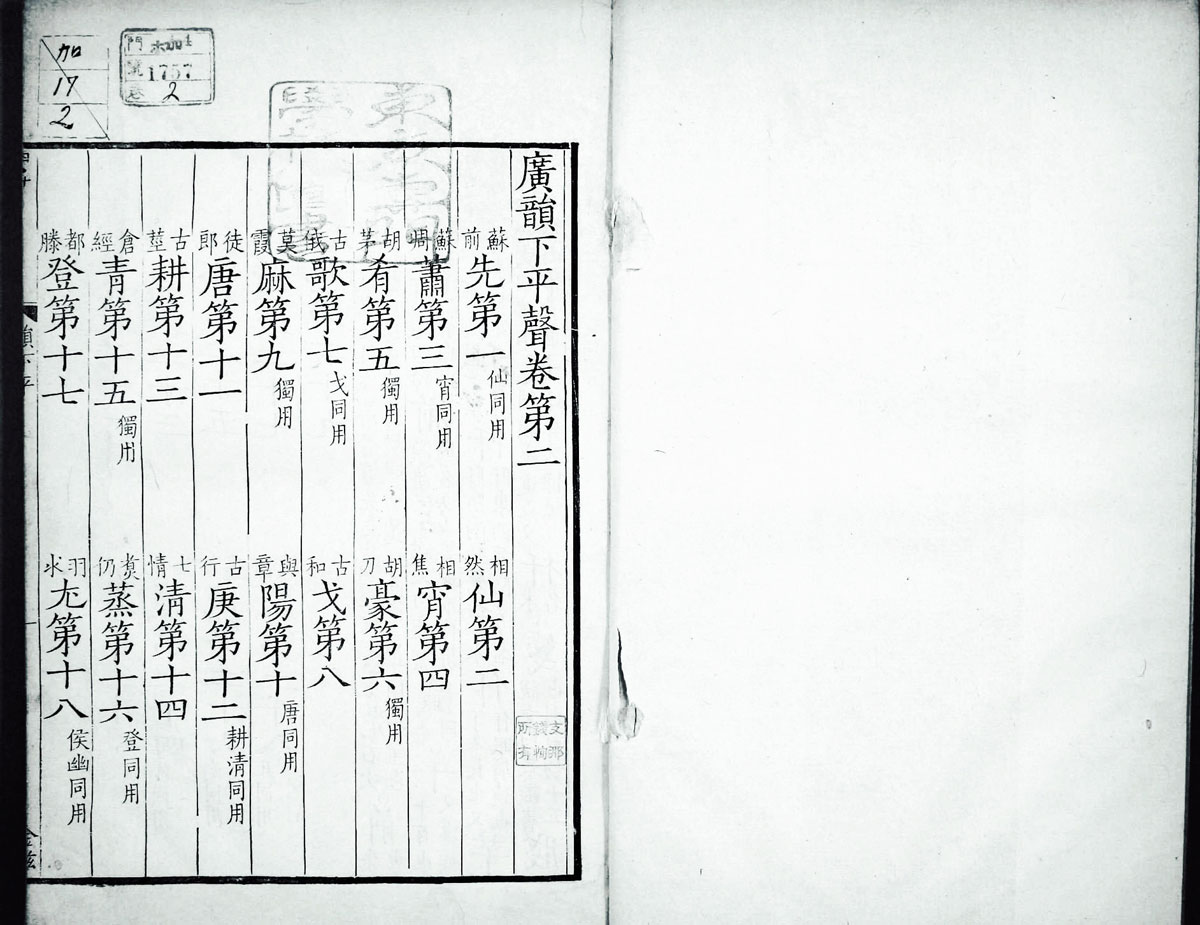 廣韻下平聲卷第二
蘇前先第一仙同用
相然仙第二
蘇彫蕭第三宵同用
相焦宵第四
胡茅肴第五獨用
胡刀豪第六獨用
古俄歌第七戈同用
古和戈第八
莫霞麻第九獨用
與章陽第十唐同用
徒郎唐第十一
古行庚第十二耕清同用
古莖耕第十三
七情清第十四
倉經青第十五獨用
煑仍蒸第十六登同用
都滕登第十七
羽求尤第十八侯幽同用
加
17
2
門
1757
2